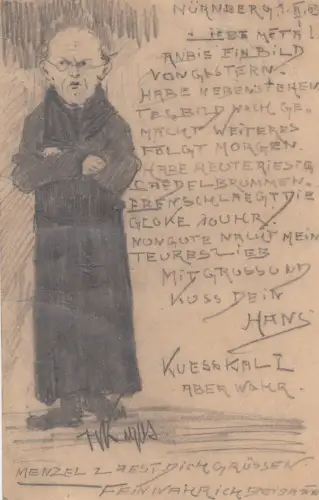 NÜRNBERG 1. II.
LIEBE META!
ANBIE EIN BILD
VON GESTERN.
HABE NEBENSTEHEN
TES BILD NOCH GE-
MACHT WEITERES
FOLGT MORGEN.
HABE HEUTE RIESIG
SCHAEDELBRUMMEN.
EBEN SCHLAEGT DIE
GLOKE UHR.
NUN GUTE NACHT MEIN
TEURES LIEB
MIT GRUSS UND
KUSS DEIN
HANS
KUESS KALT
ABER WAHR.
MENZEL LAEST DICH GRÜSSEN.